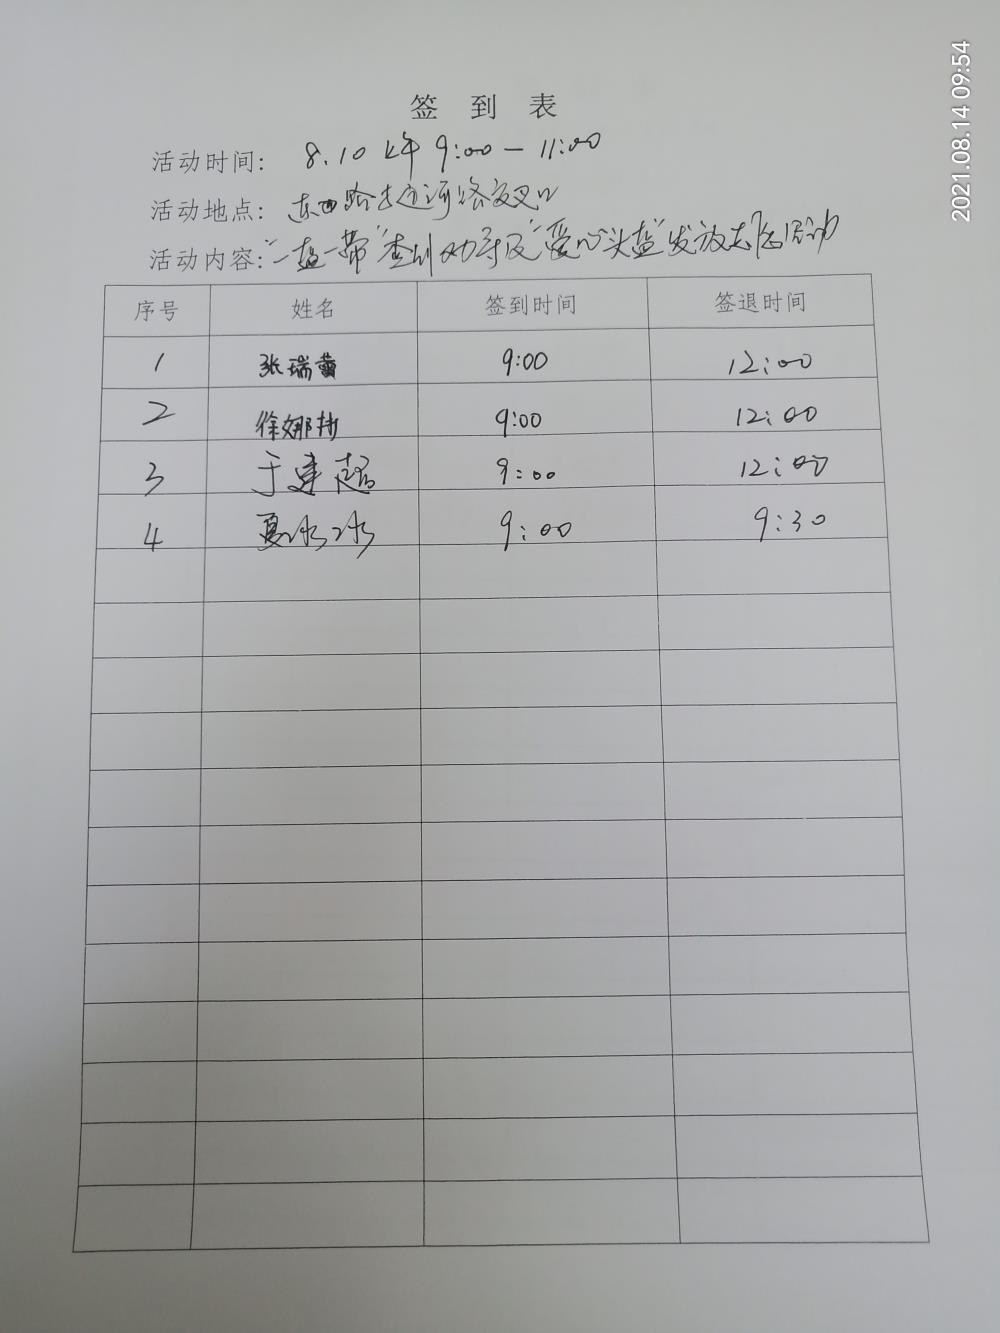 2021.08.14 09:54
签到表
活动时间: 8.10 上午 9:00—11:00
活动地点: 路交叉口
活动内容: "一盔一带"查纠劝导及"爱心头盔"发放志愿活动
序号 姓名 签到时间 签退时间
1 张瑞 9:00 12:00
2 徐娜 9:00 12:00
3 于建超 9:00 12:00
4 夏冰冰 9:00 9:30